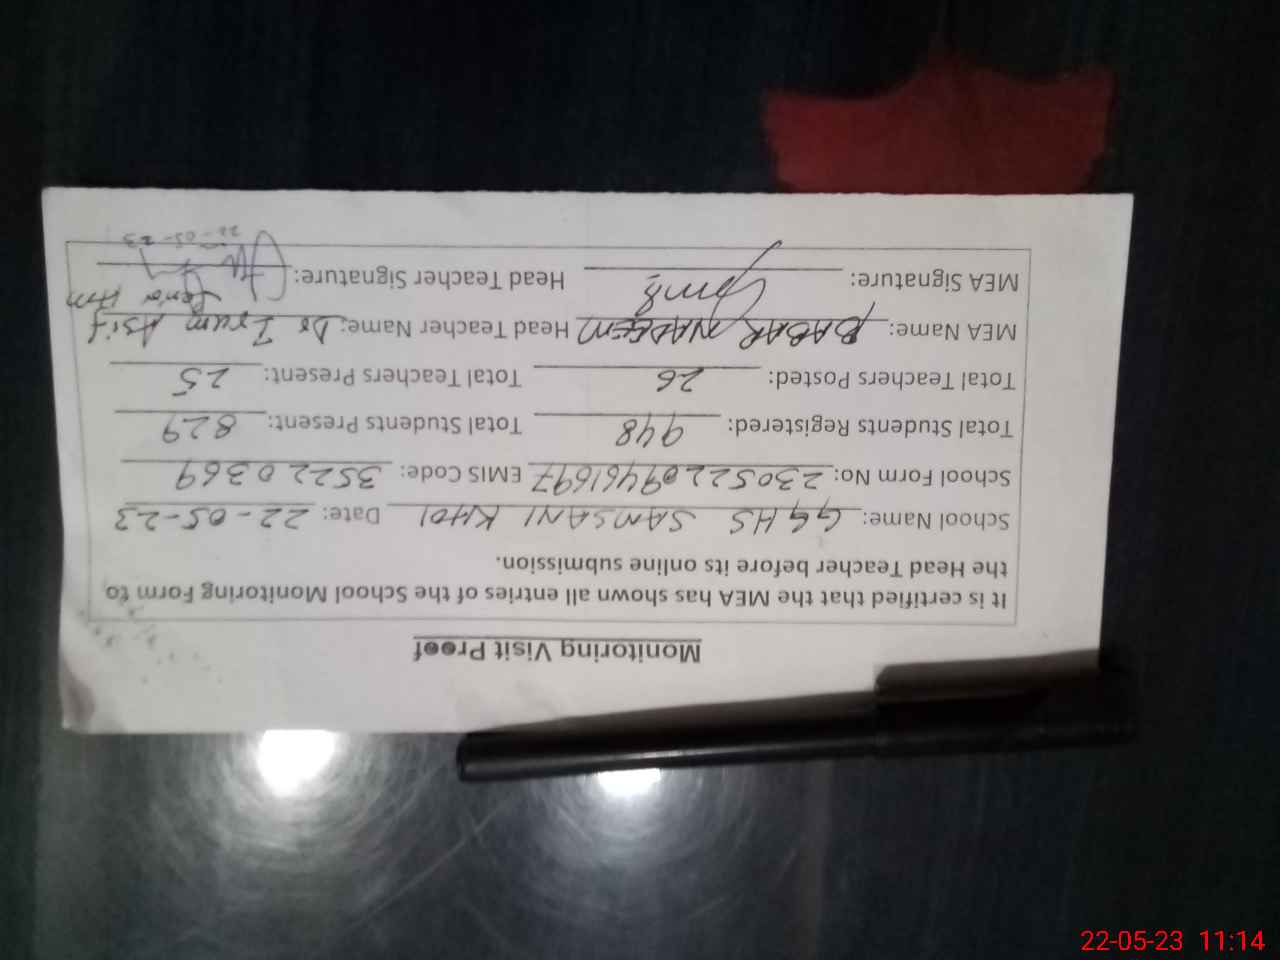 Monitoring Visit Proof
It is certified that the MEA has shown all entries of the School Monitoring Form to
the Head Teacher before its online submission.
School Name: GGHS SAMSANI KHOI Date: 22-05-23
School Form No: 23052209461697 EMIS Code: 35220369
Total Students Registered: 948 Total Students Present: 829
Total Teachers Posted: 26 Total Teachers Present: 25
MEA Name: BABAR NADEEM Head Teacher Name: Dr Irum Asif
Senior HM
MEA Signature: Head Teacher Signature:
22-05-23
22-05-23 11:14